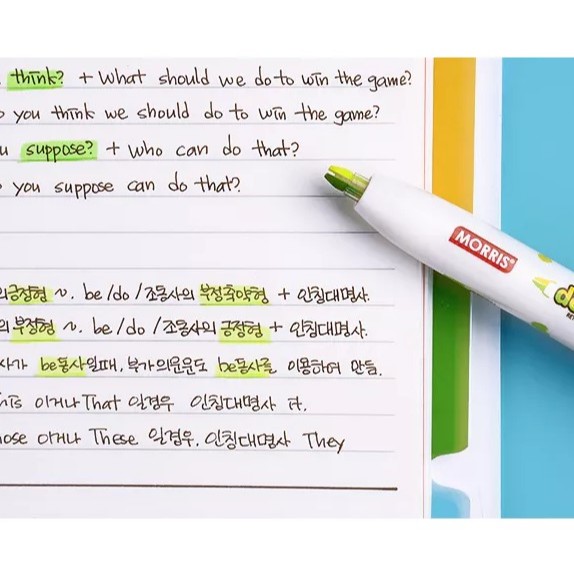 think? + What should we do to win the game?
you think we should do to win the game?
suppose? + Who can do that?
you suppose can do that?
긍정형 ~. be/do/조동사의 부정축약형 + 인칭대명사.
의 부정형 ~. be/do/조동사의 긍정형 + 인칭대명사.
사가 be동사일때, 부가의문문도 be동사를 이용하여 만듦.
이거나 That 일경우 인칭대명사 it.
이거나 These 일경우, 인칭대명사 They
MORRIS